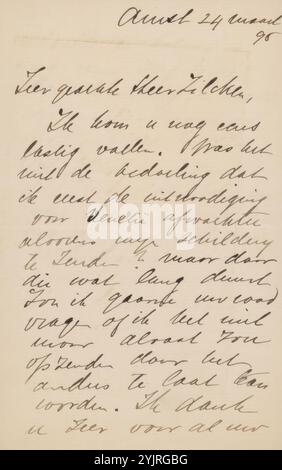 Amst 24 maart
95
Zeer geachte Heer Zilcken,
Ik kom u nog eens
lastig vallen. Was het
niet de bedoeling dat
ik eerst de uitnoodiging
voor Venetië afwachtte
alvorens mijn schilderij
te zenden? maar daar
die wat lang duurt
zou ik gaarne uw raad
vragen of ik het niet
maar alvast zou
opzenden daar het
anders te laat kan
worden. Ik dank
u zeer voor al uw
alamy
www.alamy.com
2YJRGBG